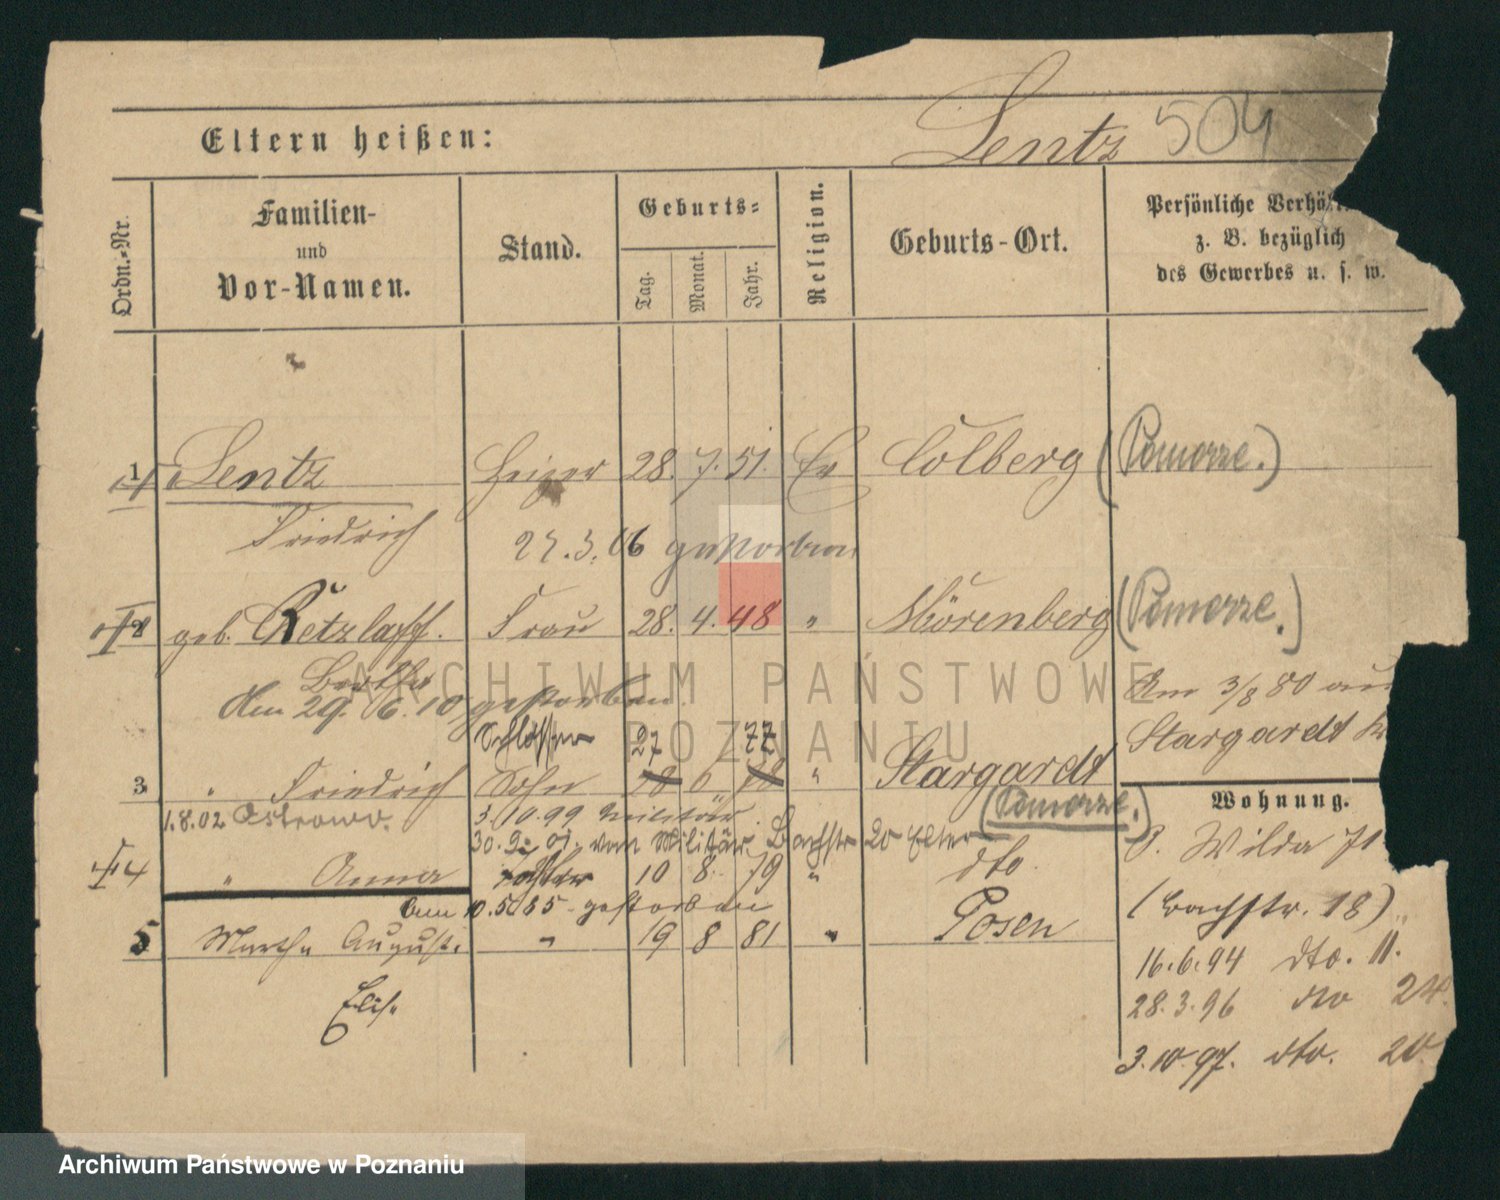 Lentz 504
Eltern heißen:
Ordn.-Nr.
Familien-
und
Vor-Namen.
Stand.
Geburts-
Tag.
Monat.
Jahr.
Religion.
Geburts-Ort.
Persönliche Verhä
z. B. bezüglich
des Gewerbes u. s. w.
1 Lentz Heizer 28. 7. 51. Ev Colberg (Pomorze.)
Friedrich 27.3.06 gestorben
2 geb. Retzlaff. Frau 28. 4. 48 " Nörenberg (Pomorze.)
Bertha
den 29. 6. 10 gestorben
Am 3/8 80 aus
Stargardt
Schlosser 27 77
3 " Friedrich Sohn 18 6 78 " Stargardt
(Pomorze.)
1.8.02 Ostrowo. 3.10.99 Militär
30.9.01. von Militär Bachstr 20 Elter
4 " Anna Tochter 10 8. 79 " dto.
Am 10.5.85 gestorben
5 Martha August. " 19 8 81 " Posen
Elis.
Wohnung.
P. Wilda 71
(Bachstr. 18)
16.6.94 dto. 11.
28.3.96 dto 24.
3.10.97. dto. 20.
ARCHIWUM PAŃSTWOWE
POZNANIU
Archiwum Państwowe w Poznaniu